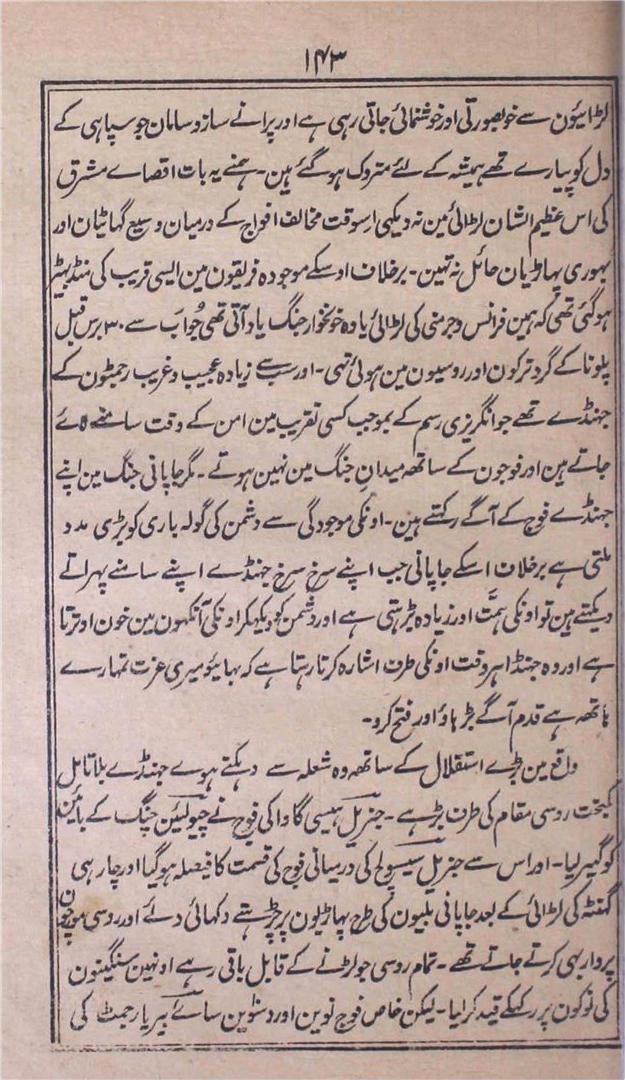 ۱۴۳
لڑائیون سے خوبصورتی اور خوشنمائی جاتی رہی ہے اور پرانے ساز و سامان جو سپاہی کے
دل کو پیارے تھے ہمیشہ کے لئے متروک ہو گئے ہین۔ ہمنے یہ بات اقصاے مشرق
کی اس عظیم الشان لڑائی مین نہ دیکھی اسوقت مخالف افواج کے درمیان وسیع گہاٹیان اور
بہوری پہاڑیان حائل نہ تہین۔ برخلاف اوسکے موجودہ فریقون مین ایسی قریب کی منڈبہیڑ
ہو گئی تھی کہ ہمین فرانس و جرمنی کی لڑائی یا وہ خونخوار جنگ یاد آتی تھی جو اب سے ۳۰ برس قبل
پلونا کے گرد ترکون اور روسیون مین ہوئی تہی۔ اور سب سے زیادہ عجیب و غریب رجمٹون کے
جہنڈے تھے جو انگریزی رسم کے بموجب کسی تقریب مین امن کے وقت سامنے لاے
جاتے ہین اور فوجون کے ساتھ میدانِ جنگ مین نہین ہوتے۔ مگر جاپانی جنگ مین اپنے
جہنڈے فوج کے آگے رکہتے ہین۔ اونکی موجودگی سے دشمن کی گولہ باری کو بڑی مدد
ملتی ہے برخلاف اسکے جاپانی جب اپنے سرخ سرخ جہنڈے اپنے سامنے پہراتے
دیکہتے ہین تو اونکی ہمت اور زیادہ بڑہتی ہے اور دشمن کو دیکہکر اونکی آنکہون مین خون اوترتا
ہے اور وہ جہنڈا ہر وقت اونکی طرف اشارہ کرتا رہتا ہے کہ بہائیو میری عزت تمہارے
ہاتھ ہے قدم آگے بڑہاؤ اور فتح کرو۔
واقع مین بڑے استقلال کے ساتھ وہ شعلہ سے دہکتے ہوے جہنڈے بلا تامل
کمبخت روسی مقام کی طرف بڑہے۔ جنریل ہیسی گاوا کی فوج نے چیولئین چنگ کے بائین
کو گھیر لیا۔ اور اس سے جنریل کی درمیانی فوج کی قسمت کا فیصلہ ہو گیا اور چار ہی
گہنٹہ کی لڑائی کے بعد جاپانی بلیون کی طرح پہاڑیون پر چڑہتے دکہائی دئے اور روسی مورچون
پر وار بہی کرتے جاتے تھے۔ تمام روسی جو لڑنے کے قابل باقی رہے اونہین سنگینون
کی نوکون پر رکہکے قید کر لیا۔ لیکن خاص فوج نوین اور دسوین سائے بیریا رجمٹ کی